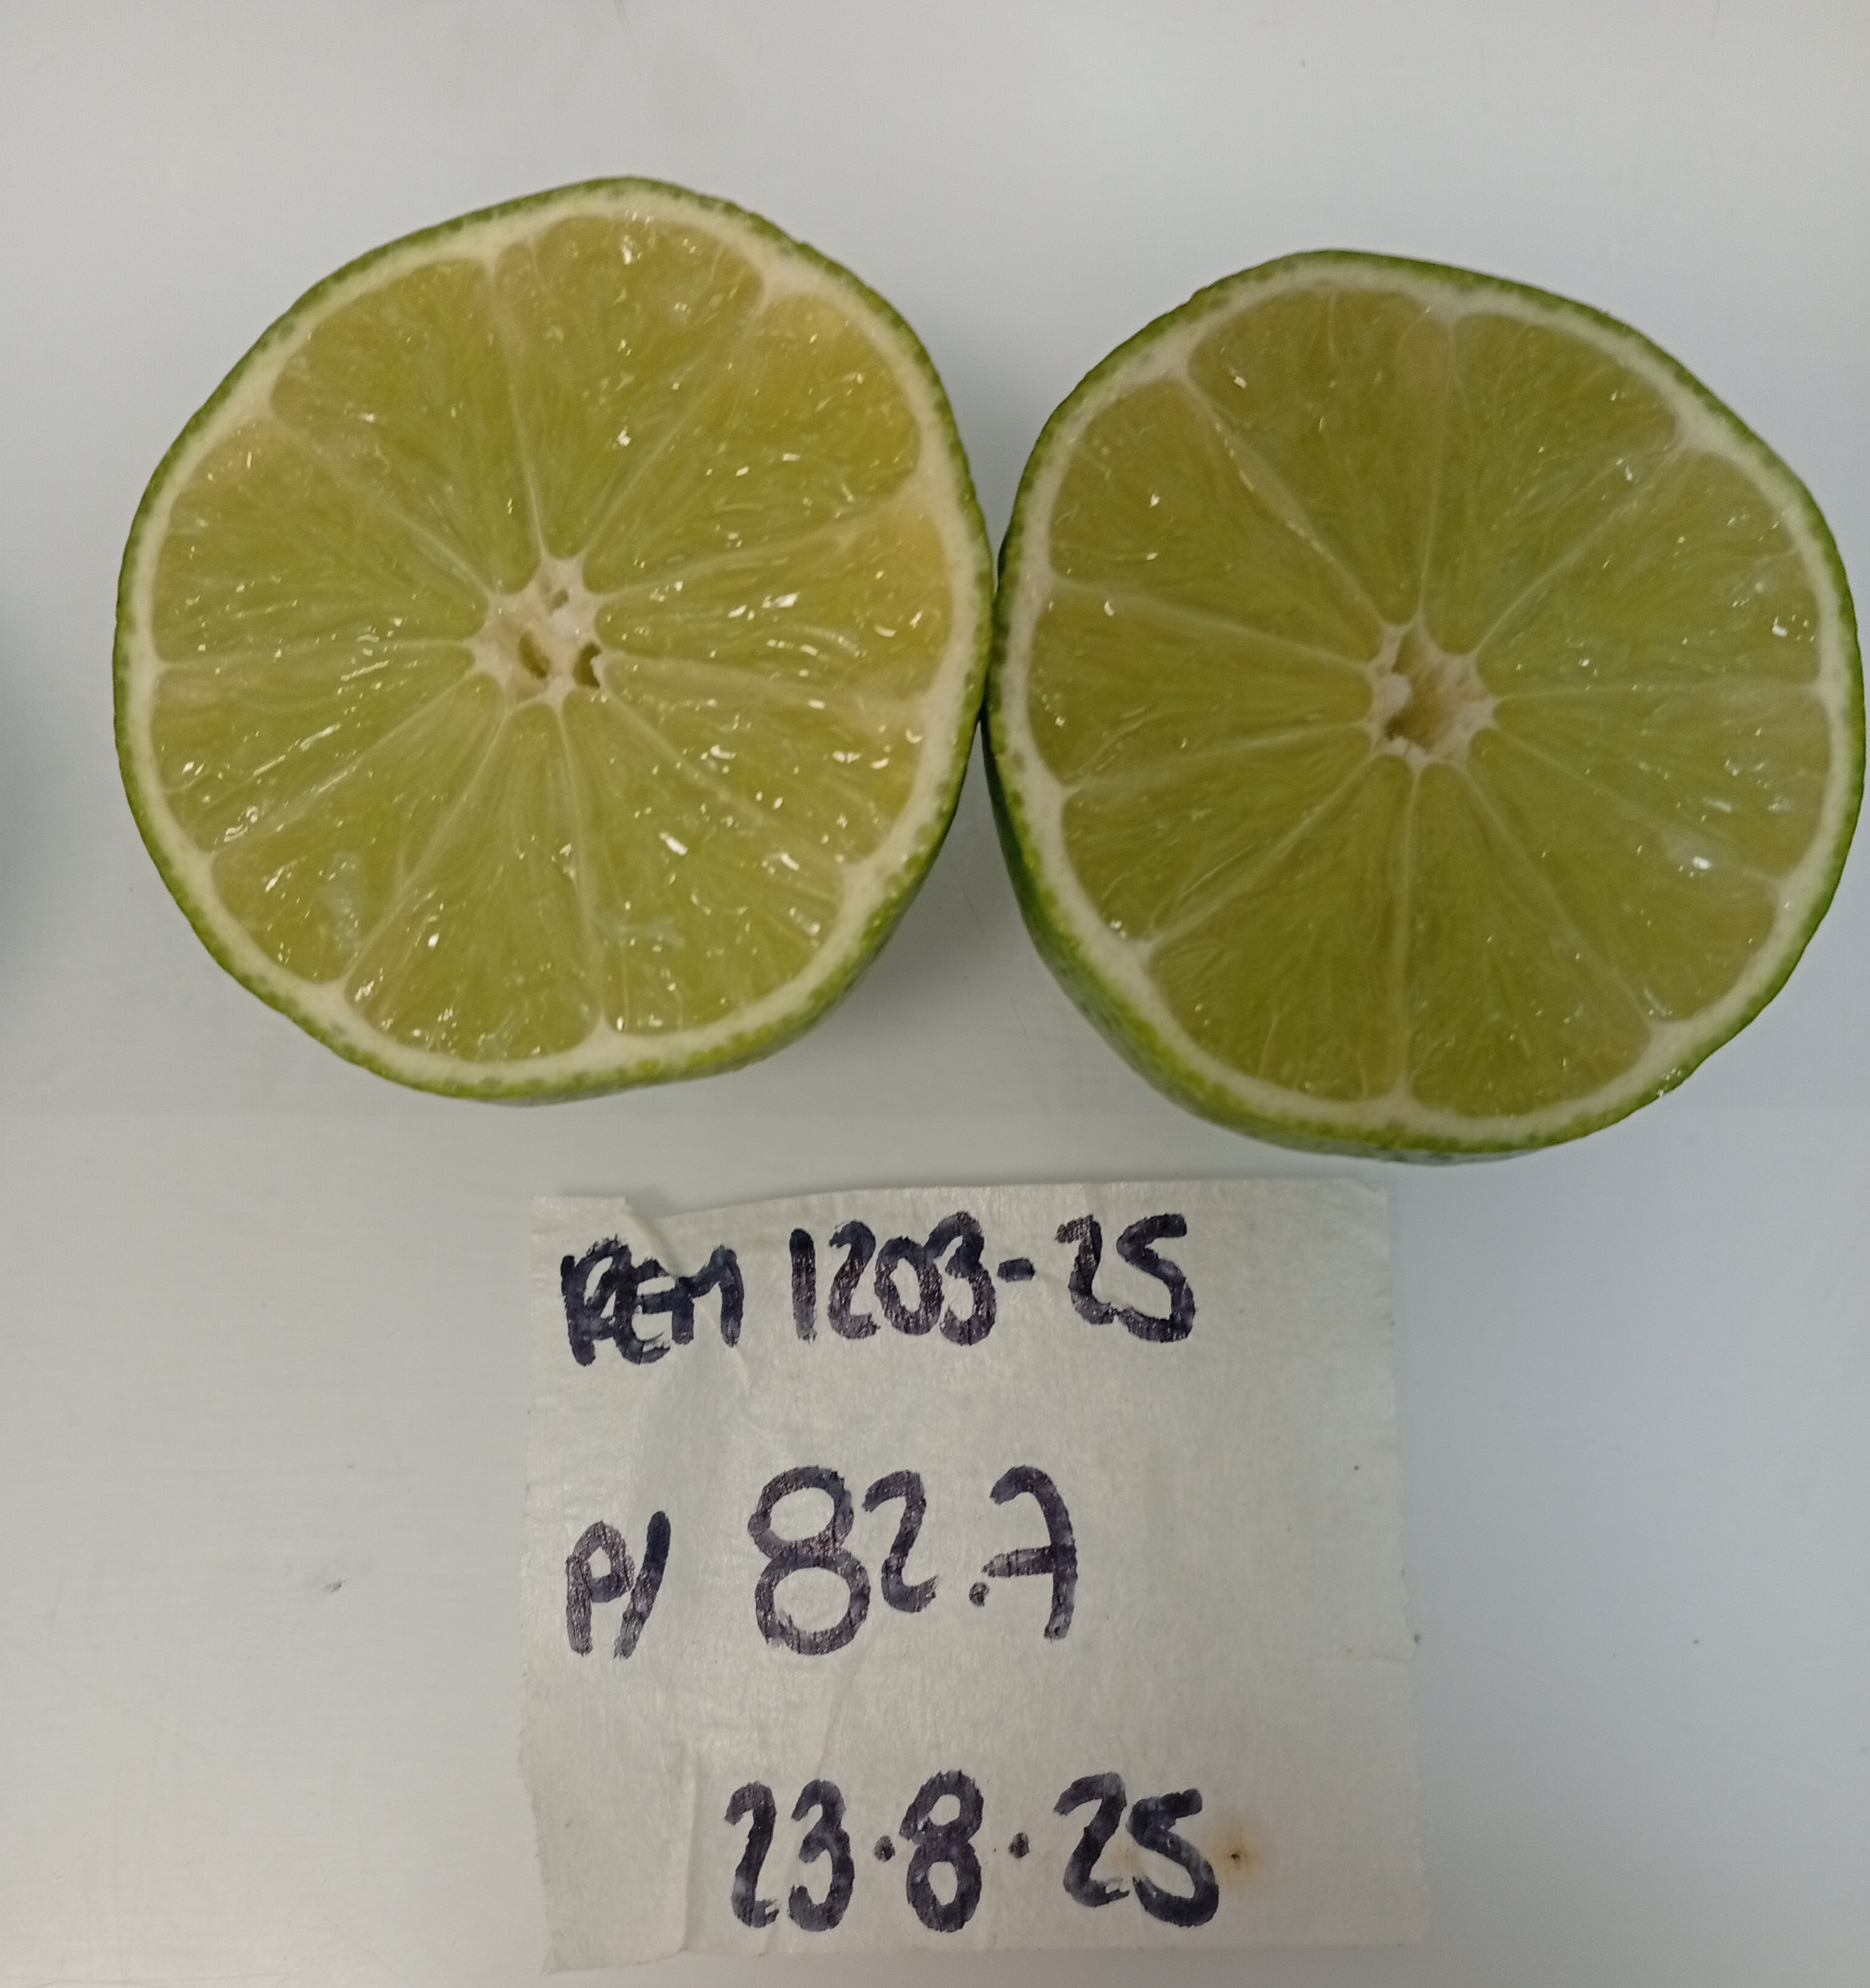 REM 1203-25
P/ 82.7
23.8.25